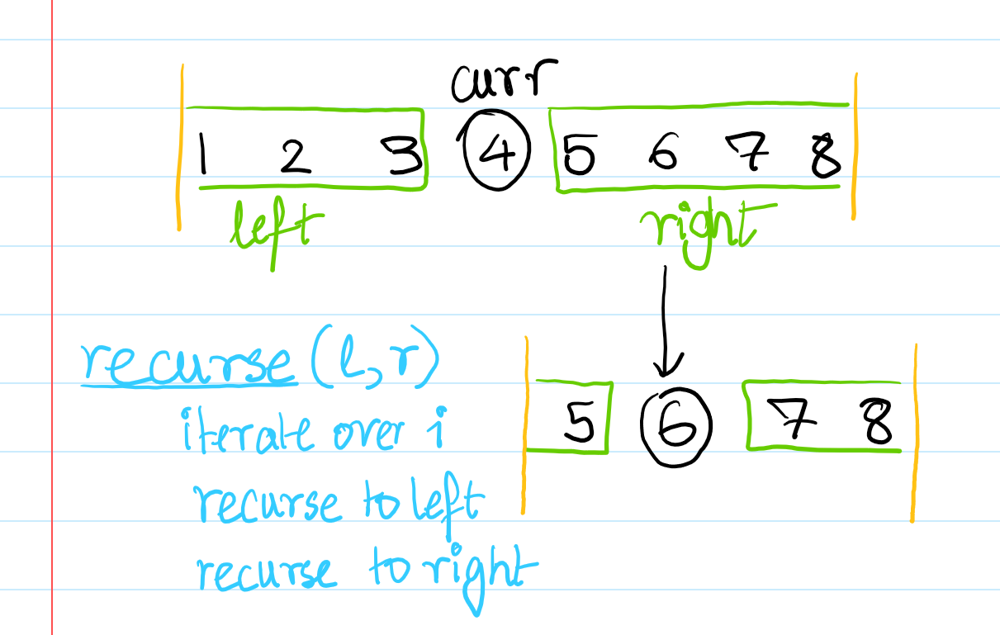 curr
1 2 3 4 5 6 7 8
left right
recurse (l,r)
iterate over i
recurse to left
recurse to right
5 6 7 8